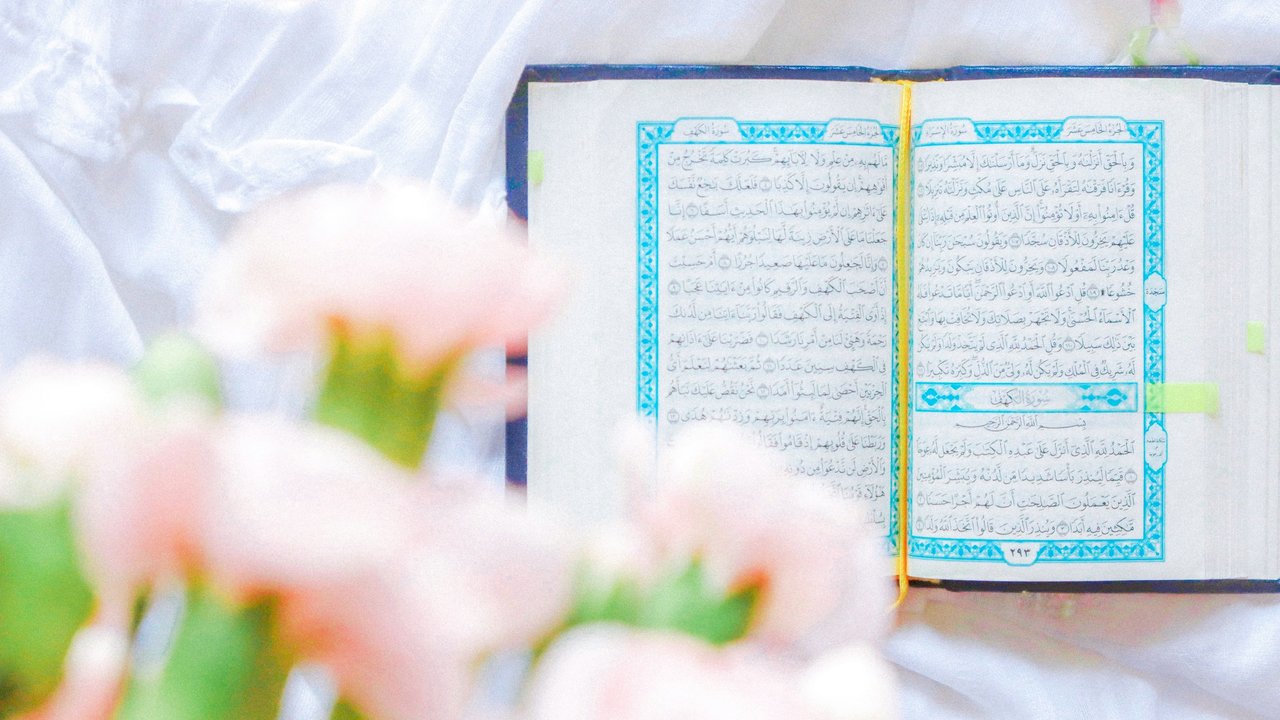 الجزء الخامس عشر
سورة الإسراء
وَبِالْحَقِّ أَنزَلْنَٰهُ وَبِالْحَقِّ نَزَلَ وَمَا أَرْسَلْنَٰكَ إِلَّا مُبَشِّرًا وَنَذِيرًا ١٠٥
وَقُرْءَانًا فَرَقْنَٰهُ لِتَقْرَأَهُ عَلَى النَّاسِ عَلَىٰ مُكْثٍ وَنَزَّلْنَٰهُ تَنزِيلًا ١٠٦
قُلْ ءَامِنُوا بِهِ أَوْ لَا تُؤْمِنُوا إِنَّ الَّذِينَ أُوتُوا الْعِلْمَ مِن قَبْلِهِ إِذَا يُتْلَىٰ
عَلَيْهِمْ يَخِرُّونَ لِلْأَذْقَانِ سُجَّدًا ١٠٧ وَيَقُولُونَ سُبْحَٰنَ رَبِّنَا إِن كَانَ
وَعْدُ رَبِّنَا لَمَفْعُولًا ١٠٨ وَيَخِرُّونَ لِلْأَذْقَانِ يَبْكُونَ وَيَزِيدُهُمْ
خُشُوعًا ١٠٩ قُلِ ادْعُوا اللَّهَ أَوِ ادْعُوا الرَّحْمَٰنَ أَيًّا مَّا تَدْعُوا فَلَهُ
الْأَسْمَاءُ الْحُسْنَىٰ وَلَا تَجْهَرْ بِصَلَاتِكَ وَلَا تُخَافِتْ بِهَا وَابْتَغِ
بَيْنَ ذَٰلِكَ سَبِيلًا ١١٠ وَقُلِ الْحَمْدُ لِلَّهِ الَّذِي لَمْ يَتَّخِذْ وَلَدًا وَلَمْ يَكُن
لَّهُ شَرِيكٌ فِي الْمُلْكِ وَلَمْ يَكُن لَّهُ وَلِيٌّ مِّنَ الذُّلِّ وَكَبِّرْهُ تَكْبِيرًا ١١١
سُورَةُ الْكَهْفِ
بِسْمِ اللَّهِ الرَّحْمَٰنِ الرَّحِيمِ
الْحَمْدُ لِلَّهِ الَّذِي أَنزَلَ عَلَىٰ عَبْدِهِ الْكِتَٰبَ وَلَمْ يَجْعَل لَّهُ عِوَجًا
١ قَيِّمًا لِّيُنذِرَ بَأْسًا شَدِيدًا مِّن لَّدُنْهُ وَيُبَشِّرَ الْمُؤْمِنِينَ
الَّذِينَ يَعْمَلُونَ الصَّٰلِحَٰتِ أَنَّ لَهُمْ أَجْرًا حَسَنًا ٢
مَّٰكِثِينَ فِيهِ أَبَدًا ٣ وَيُنذِرَ الَّذِينَ قَالُوا اتَّخَذَ اللَّهُ وَلَدًا ٤
٢٩٣
سجدة
الجزء الخامس عشر
سورة الكهف
مَّا لَهُم بِهِ مِنْ عِلْمٍ وَلَا لِءَابَائِهِمْ كَبُرَتْ كَلِمَةً تَخْرُجُ مِنْ
أَفْوَٰهِهِمْ إِن يَقُولُونَ إِلَّا كَذِبًا ٥ فَلَعَلَّكَ بَٰخِعٌ نَّفْسَكَ
عَلَىٰ ءَاثَٰرِهِمْ إِن لَّمْ يُؤْمِنُوا بِهَٰذَا الْحَدِيثِ أَسَفًا ٦ إِنَّا
جَعَلْنَا مَا عَلَى الْأَرْضِ زِينَةً لَّهَا لِنَبْلُوَهُمْ أَيُّهُمْ أَحْسَنُ عَمَلًا
٧ وَإِنَّا لَجَٰعِلُونَ مَا عَلَيْهَا صَعِيدًا جُرُزًا ٨ أَمْ حَسِبْتَ
أَنَّ أَصْحَٰبَ الْكَهْفِ وَالرَّقِيمِ كَانُوا مِنْ ءَايَٰتِنَا عَجَبًا ٩
إِذْ أَوَى الْفِتْيَةُ إِلَى الْكَهْفِ فَقَالُوا رَبَّنَا ءَاتِنَا مِن لَّدُنكَ
رَحْمَةً وَهَيِّئْ لَنَا مِنْ أَمْرِنَا رَشَدًا ١٠ فَضَرَبْنَا عَلَىٰ ءَاذَانِهِمْ
فِي الْكَهْفِ سِنِينَ عَدَدًا ١١ ثُمَّ بَعَثْنَٰهُمْ لِنَعْلَمَ أَيُّ
الْحِزْبَيْنِ أَحْصَىٰ لِمَا لَبِثُوا أَمَدًا ١٢ نَّحْنُ نَقُصُّ عَلَيْكَ نَبَأَهُم
بِالْحَقِّ إِنَّهُمْ فِتْيَةٌ ءَامَنُوا بِرَبِّهِمْ وَزِدْنَٰهُمْ هُدًى ١٣
وَرَبَطْنَا عَلَىٰ قُلُوبِهِمْ إِذْ قَامُوا فَقَالُوا
وَالْأَرْضِ لَن نَّدْعُوَا مِن
هَٰؤُلَاءِ